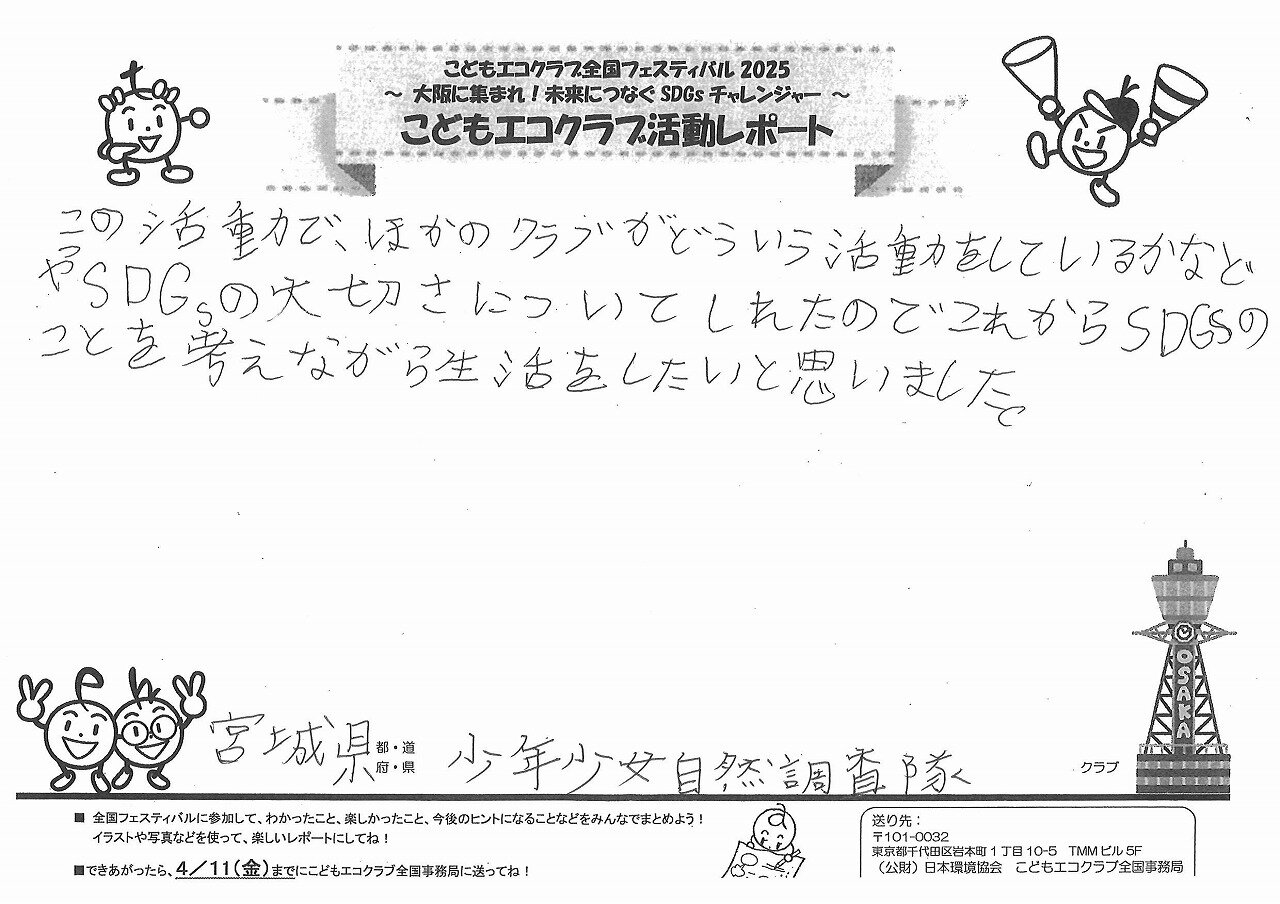 こどもエコクラブ全国フェスティバル 2025
～ 大阪に集まれ！未来につなぐ SDGs チャレンジャー ～
こどもエコクラブ活動レポート
この活動で、ほかのクラブがどういう活動をしているかなど
やSDGsの大切さについてしれたのでこれからSDGsの
ことを考えながら生活をしたいと思いました。
宮城県 都・道 府・県 少年少女自然調査隊 クラブ
OSAKA
■ 全国フェスティバルに参加して、わかったこと、楽しかったこと、今後のヒントになることなどをみんなでまとめよう！
イラストや写真などを使って、楽しいレポートにしてね！
■できあがったら、4／11(金)までにこどもエコクラブ全国事務局に送ってね！
送り先：
〒101-0032
東京都千代田区岩本町 1 丁目 10-5 TMM ビル 5F
（公財）日本環境協会 こどもエコクラブ全国事務局